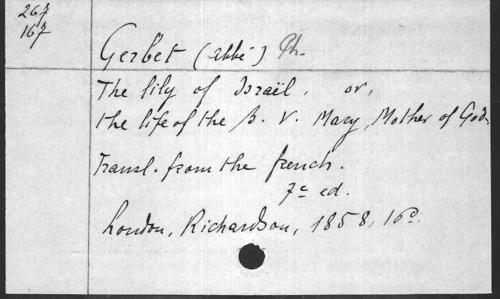 267
167
Gerbet (abbé) Ph.
The lily of Israël, or,
the life of the B. V. Mary, Mother of God.
Transl. from the french.
7e ed.
London, Richardson, 1858, 16o.